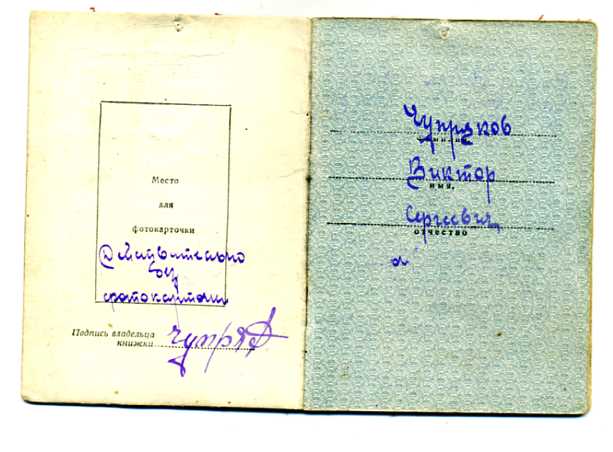 Место
для
фотокарточки
Действительно
без
фотокарточки
Подпись владельца
книжки
Чупряк
Чупряков
фамилия
Виктор
имя,
Сергеевич
отчество